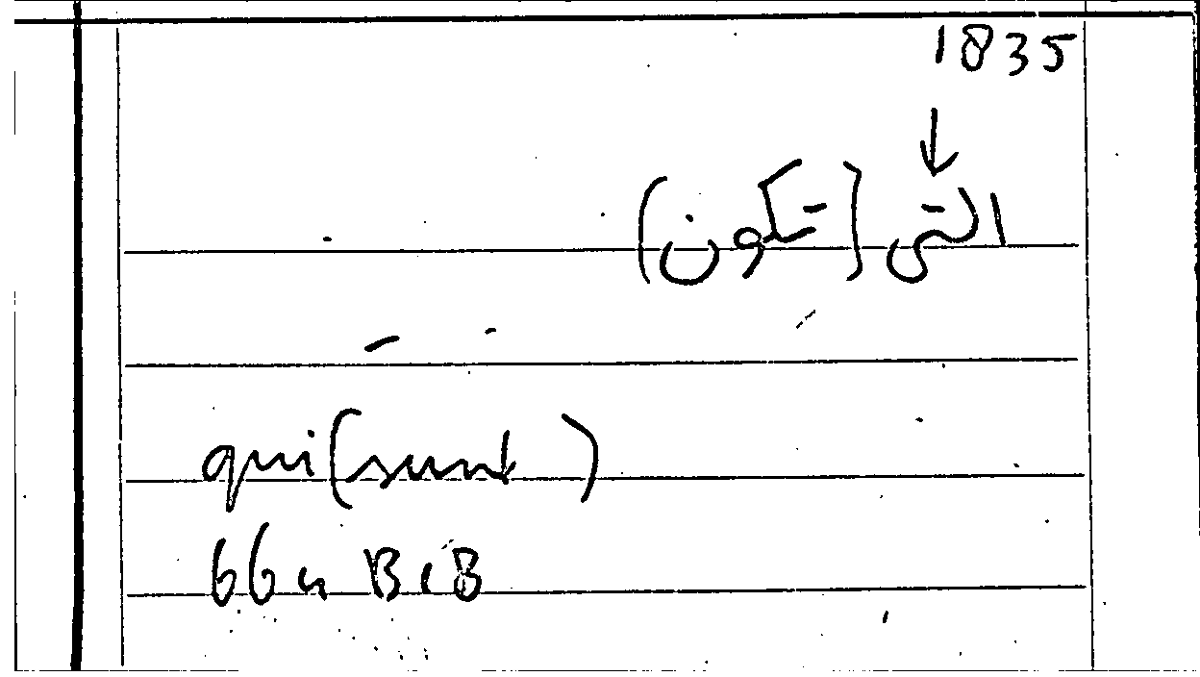 1835
↓
التى (تكون)
qui (sunt)
66u B1B